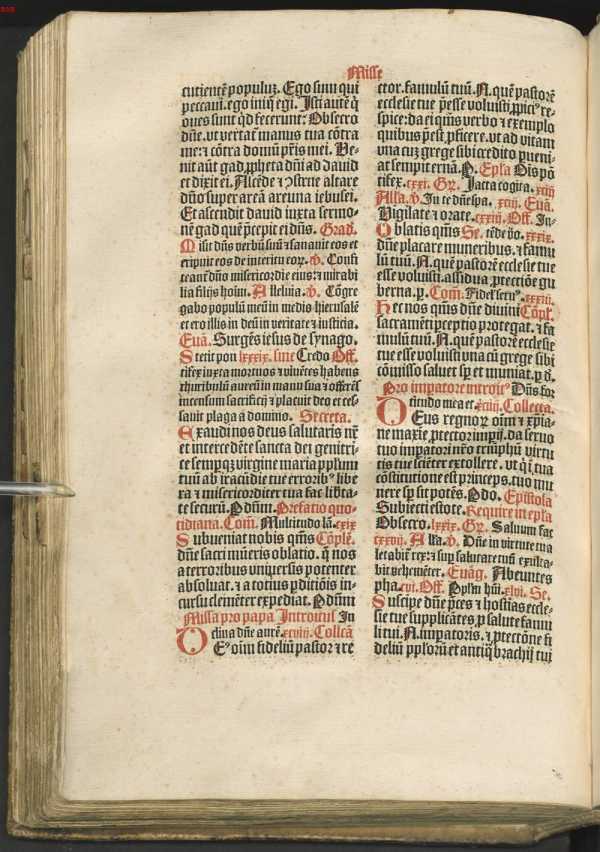 Misse
cutientē populuz. Ego sum qui
peccaui. ego iniq̄ egi. Isti autē q̄
oues sunt qd fecerunt: Obsecro
dn̄e. vt vertat̄ manus tua cōtra
me: ⁊ cōtra domū pr̄is mei. Ve-
nit aūt gad ꝓpheta dn̄i ad dauid
et dixit ei. Ascēde ⁊ ꝯstrue altare
dn̄o super areā areuna iebusei.
Et ascendit dauid iuxta sermo-
nē gad quē p̄cepit ei dn̄s. Grad̄.
Misit dn̄s verbū suū ⁊ sanauit eos et
eripuit eos de interitu eoꝝ. ℣. Confi
teant̄ dn̄o misericordie eius: ⁊ mirabi
lia filijs hoīm. Alleluia. ℣. Cōgre
gabo populū meū in medio hierusalē
et ero illis in deū in veritate ⁊ iusticia.
Euā. Surgēs iesus de synago.
Stetit pon lxxxix. sine Credo Off.
tifex inter mortuos ⁊ viuētes habens
thuribulū aureū in manu sua ⁊ offerēs
incensum sacrificij ⁊ placuit deo et ces-
sauit plaga a domino. Secreta.
Exaudi nos deus salutaris nr̄
et intercedēte sancta dei genitri-
ce semꝑqꝫ virgine maria pplm
tuū ab iracūdie tue erroribꝰ libe
ra ⁊ misericorditer tua fac liber̄ta-
te securū. P dn̄m. Prefatio quo-
tidiana. Com̄. Multitudo lā. cxix
Subueniat nobis qm̄s Cōplē.
dn̄e sacri mūeris oblatio. q̄ nos
a terroribus vniuersis potenter
absoluat. ⁊ a totius ꝑditiōis in-
cursu clemēter expediat. P dn̄m
Missa pro papa Introitus In
clina dn̄e aurē. xcviij. Collcā
Deꝰ oīm fideliū pastor ⁊ re
ctor. famulū tuū. N. quē pastorē
ecclesie tue p̄esse voluisti ꝓpiciꝰ re-
spice: da ei qm̄s verbo ⁊ exemplo
quibus p̄est ꝓficere. vt ad vitam
vna cuz grege sibi credito pueni-
at sempiternā. P. Ep̄la Ois pō
tifex. cxxi. Gr̄. Iacta cogita. xciij
Alla. ℣. In te dn̄e spa. xciij. Euā.
Vigilate ⁊ orate. cxxiij. Off. In-
Oblatis qm̄s Se. tēde vo. xxxix.
dn̄e placare muneribus. ⁊ famu
lū tuū. N. quē pastorē ecclesie tue
esse voluisti assidua ꝓtectiōe gu
berna. p. Com̄. Fidel̄ seruꝰ. xxxiij.
Hec nos qm̄s dn̄e diuini Cōpl̄.
sacramēti pceptio protegat. ⁊ fa
mulū tuū. N. quē pastorē ecclesie
tue esse voluisti vna cū grege sibi
cōmisso saluet sp̄ et muniat. p d̄.
Pro impatore introitꝰ Dn̄s for
titudo mea et. xciij. Collecta.
Deus regnoꝝ oīm ⁊ xp̄ia-
ne maxie ꝓtector impij. da seruo
tuo impatori nr̄o triūphū virtu
tis tue sciēter extollere. vt q̄ tua
cōstitutione est princeps. tuo mu
nere sp̄ sit potēs. P do. Epistola
Subiecti estote. Require in ep̄la
Obsecro. lxxix. Gr̄. Saluum fac
cxxvij. Alla. ℣. Dn̄e in virtute tua
letabit̄ rex: ⁊ sup̄ salutare tuū exulta-
bit vehemēter. Euāg. Abeuntes
pha. cvi. Off. Ppl̄m hūi. xlvi. Se.
Suscipe dn̄e p̄ces ⁊ hostias eccle-
sie tue supplicātes. ꝓ salute famu
li tui. N. impatoris. ⁊ ptectōne fi
deliū pploꝝ et antiq̄ brachij tui